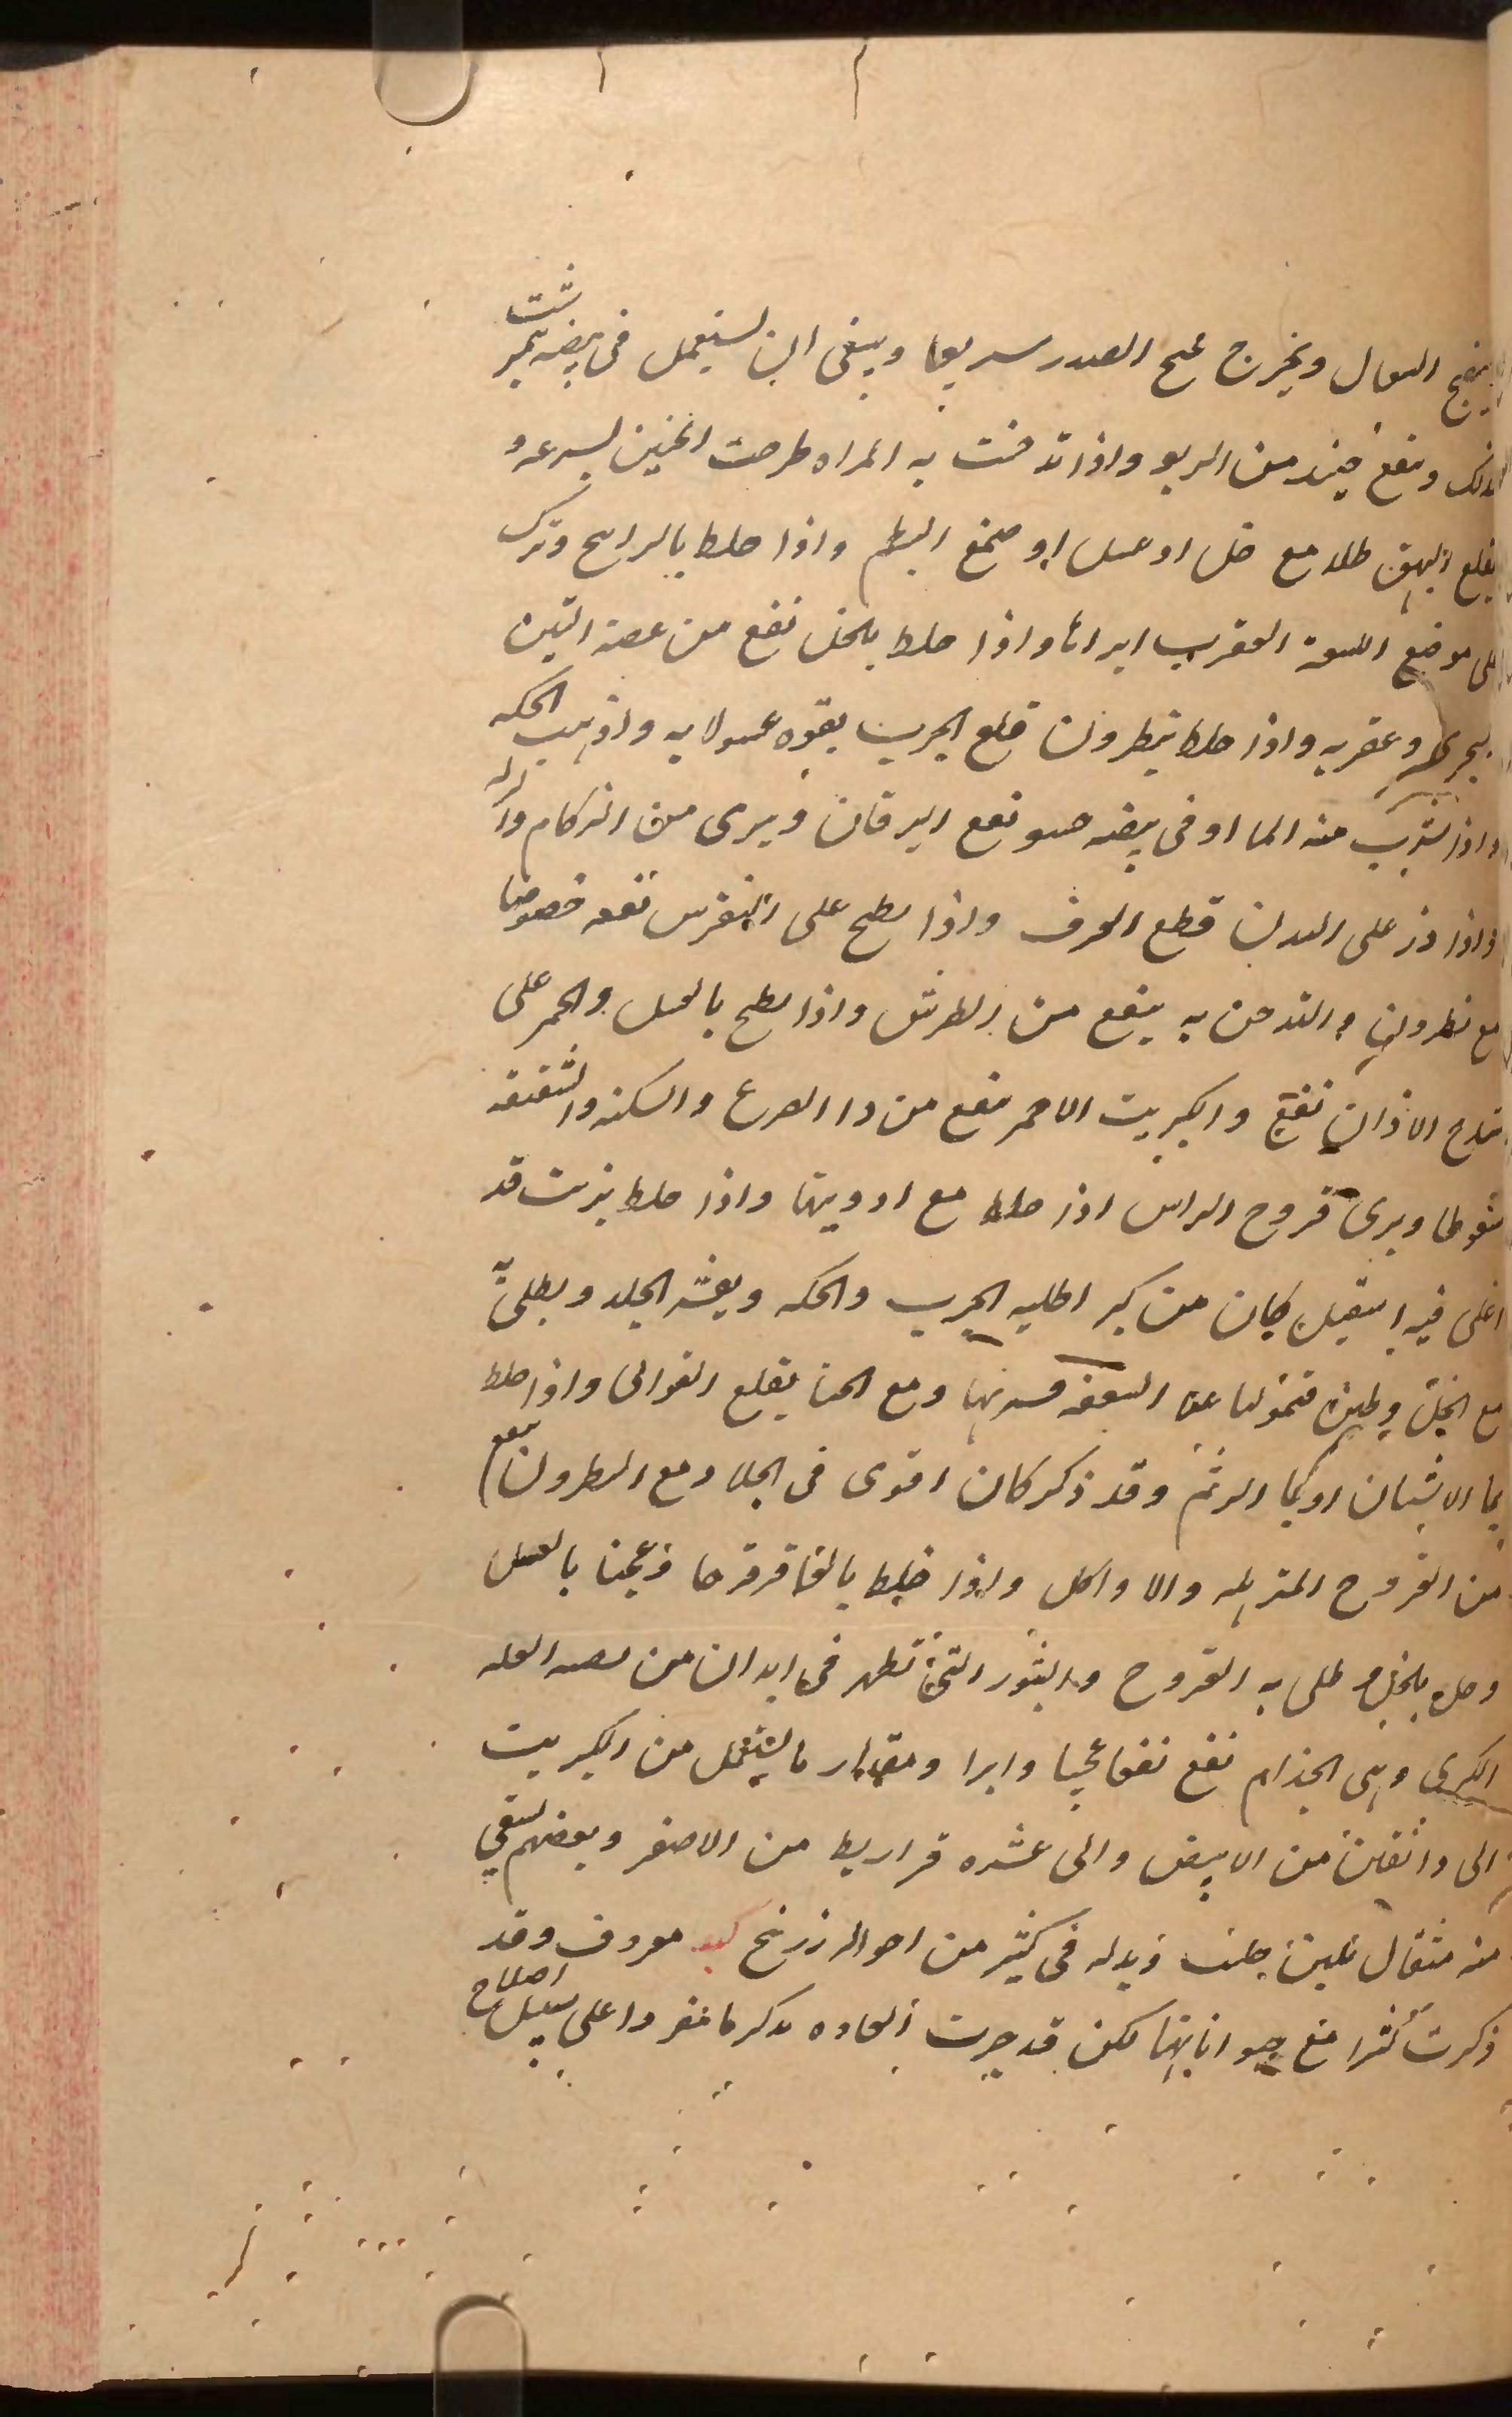 ينضج السعال ويخرج قيح الصدر سريعا وينبغى ان يستعمل فى بيضه نيمبرشت
لذلك وينفع حينئذ من الربو واذا تدخنت به المراه طرحت الجنين بسرعه و
يقلع البهق طلا مع خل او عسل او صمغ البطم واذا خلط بالراتينج وترك
على موضع اللسعه العقرب ابراها واذا خلط بالخل نفع من عضه التنين
البحرى وعقربه واذا خلط بنطرون قلع الجرب بقوه غسولا به واذهب الحكه
واذا شرب منه الما او فى بيضه حسو نفع اليرقان ويبرى من الزكام والنزله
واذا ذر على البدن قطع العرق واذا لطخ على النقرس نفعه خصوصا
مع نطرون والتدخن به ينفع من الطرش واذا لطخ بالعسل والخمر على
الاذان نفع والكبريت الاحمر ينفع من دا الصرع والسكته والشقيقه
سعوطا ويبرى قروح الراس اذا خلط مع ادويتها واذا خلط بزيت قد
اغلى فيه اشقيل كان من اكبر اطليه الجرب والحكه ويقشر الجلد ويطلى
مع الخل السعفه ومع الحنا يقلع القوابى واذا خلط
بما الاشنان او بما الرثم وقد ذكر كان اقوى فى الجلا ومع النطرون نفع
من القروح المترهله والا واكل واذا خلط بالعاقرقرحا وعجنا بالعسل
وحل بالخل وطلى به القروح والبثور التى تظهر فى ابدان من العله
الكبرى وهى الجذام نفع نفعا عجيبا وابرا ومقدار ما يستعمل من الكبريت
الى دانقين من الابيض والى عشره قراريط من الاصفر وبعضهم يسقى
منه مثقال بلبن حليب وبدله فى كثير من احواله زرنيخ كبد معروف وقد
ذكرت كثيرا مع حيواناتها لكن قد جرت العاده بذكرها مفردا على سبيل اصطلاح